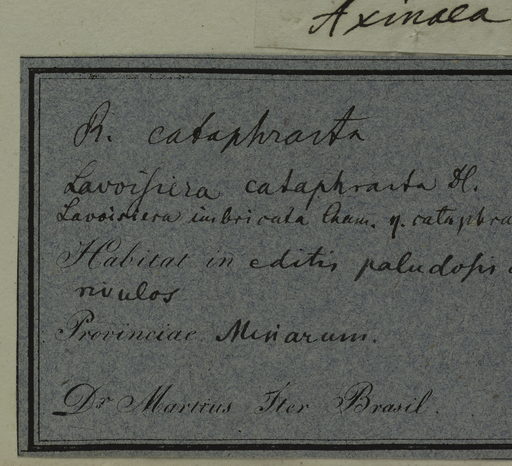 Axinaea
R. cataphracta
Lavoisiera cataphracta D.
Lavoisiera imbricata Cham. γ. cataphra
Habitat in editis paludosis
rivulos
Provinciae Minarum.
Dr Martius Iter Brasil.